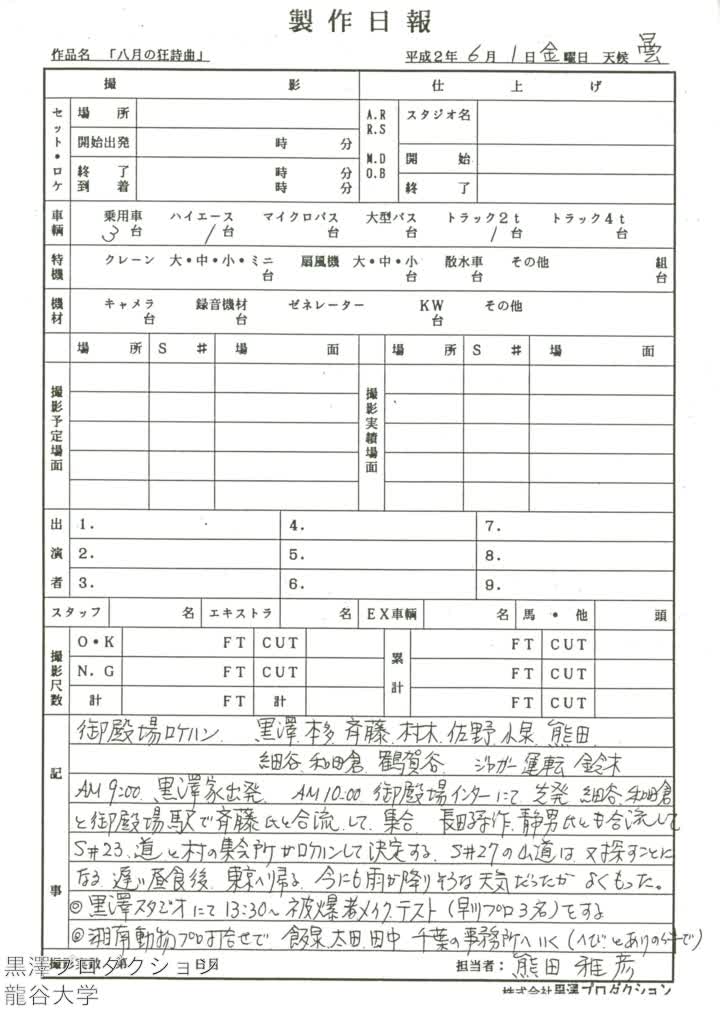 製作日報
作品名 「八月の狂詩曲」 平成2年 6月 1日 金曜日 天候 曇
撮影 仕上げ
セット・ロケ 場所 A.R R.S M.D O.B スタジオ名
開始出発 時 分 開始
終了 時 分 終了
到着 時 分
車輛 乗用車 ハイエース マイクロバス 大型バス トラック2t トラック4t
3台 1台 台 台 1台 台
特機 クレーン 大・中・小・ミニ 扇風機 大・中・小 散水車 その他 組
台 台 台 台
機材 キャメラ 録音機材 ゼネレーター KW その他
台 台 台
場所 S# 場面 場所 S# 場面
撮影予定場面 撮影実績場面
出演者 1. 4. 7.
2. 5. 8.
3. 6. 9.
スタッフ 名 エキストラ 名 EX車輌 名 馬・他 頭
撮影尺数 O・K FT CUT 累計 FT CUT
N.G FT CUT FT CUT
計 FT 計 FT CUT
記事
御殿場ロケハン 黒澤、本多、斉藤、村木、佐野、小泉、熊田、
細谷、和田倉、鶴賀谷、ジャガー運転 鈴木
AM 9:00 黒澤家出発、AM 10:00 御殿場インターにて、先発 細谷、和田倉
と御殿場駅で斉藤氏と合流して、集合 長田孫作、静男氏とも合流して
S#23、道と村の集会所がロケハンして決定する。S#27の山道は、又探すことに
なる。遅い昼食後、東京へ帰る。今にも雨が降りそうな天気だったが よくもった。
◎黒澤スタジオにて 13:30〜 被爆者メイクテスト(早川プロ3名)をする
◎湘南動物プロ打合せで 飯泉、太田、田中 千葉の事務所へいく(へびとありの件で)
撮影実数 第 日目 担当者: 熊田雅彦
株式会社黒澤プロダクション
黒澤プロダクション
龍谷大学